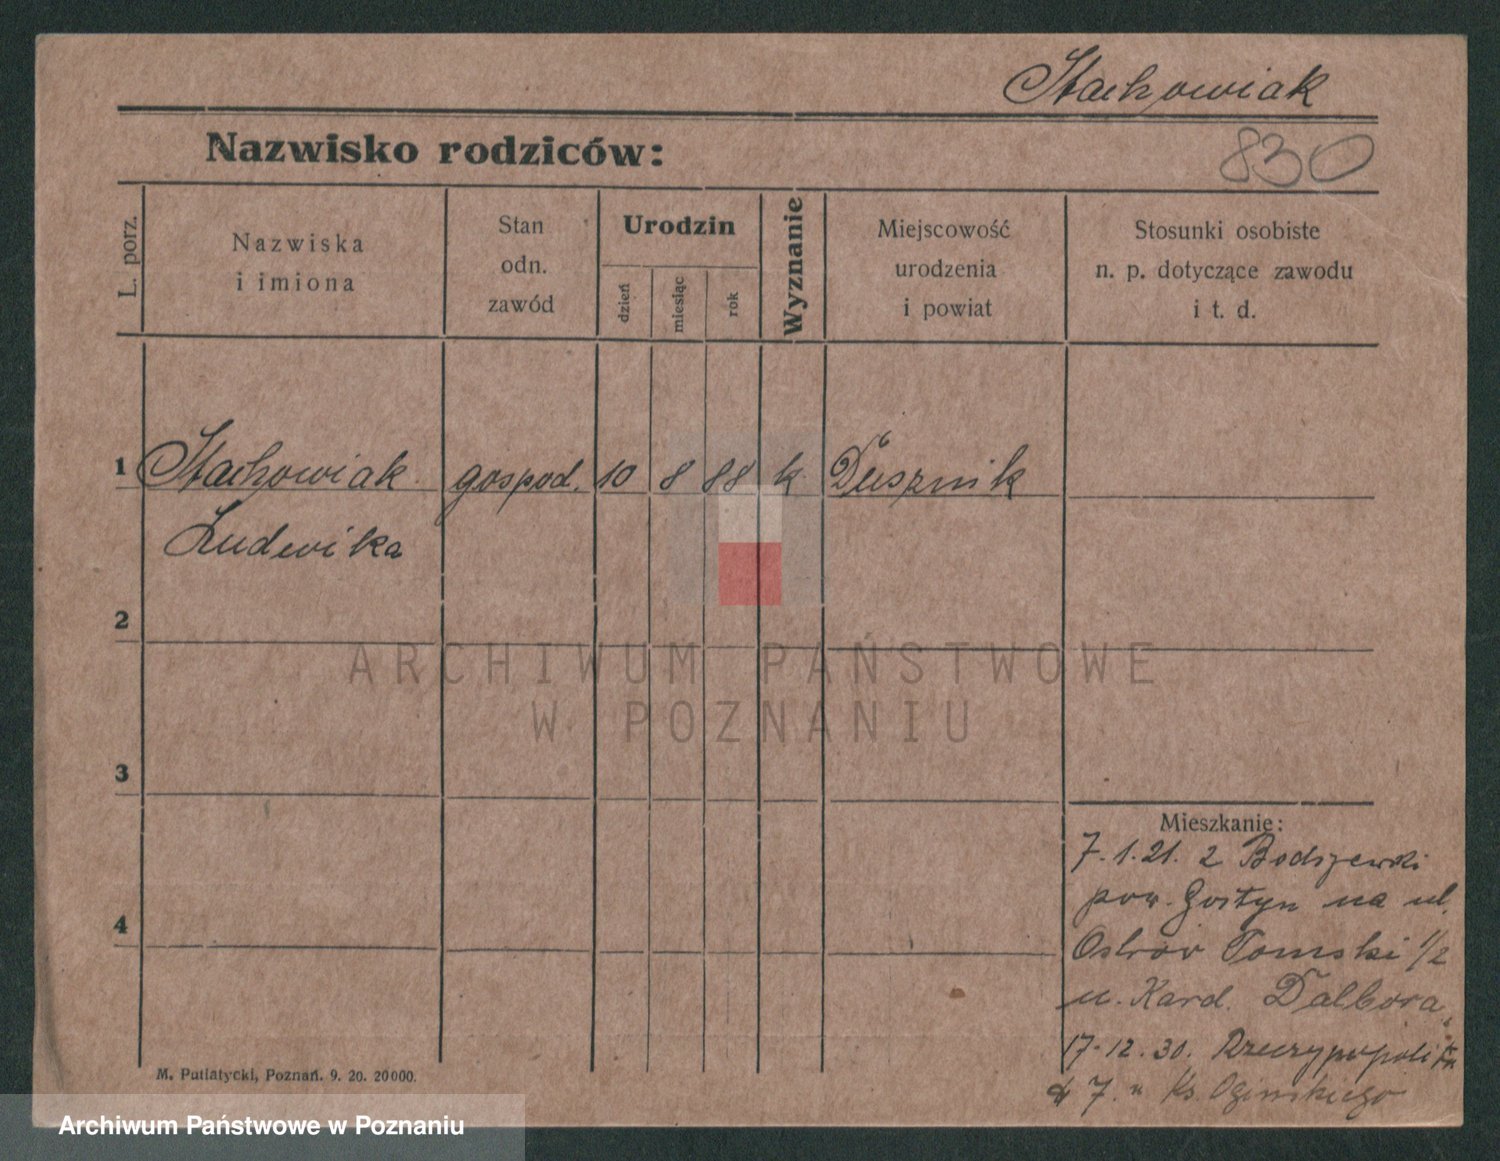 Stachowiak
Nazwisko rodziców:
830
L. porz.
Nazwiska
i imiona
Stan
odn.
zawód
Urodzin
dzień
miesiąc
rok
Wyznanie
Miejscowość
urodzenia
i powiat
Stosunki osobiste
n. p. dotyczące zawodu
i t. d.
1 Stachowiak gospod. 10 8 88 k Dusznik
Ludwika
2
ARCHIWUM PAŃSTWOWE
W POZNANIU
3
Mieszkanie:
7.1.21. z Bodzewki
pow. Gostyn na ul.
Ostrów Tumski 1/2
u. Kard. Dalbora
17.12.30.
7. u Ks. Ogińskiego
4
M. Putiatycki, Poznań. 9. 20. 20000.
Archiwum Państwowe w Poznaniu